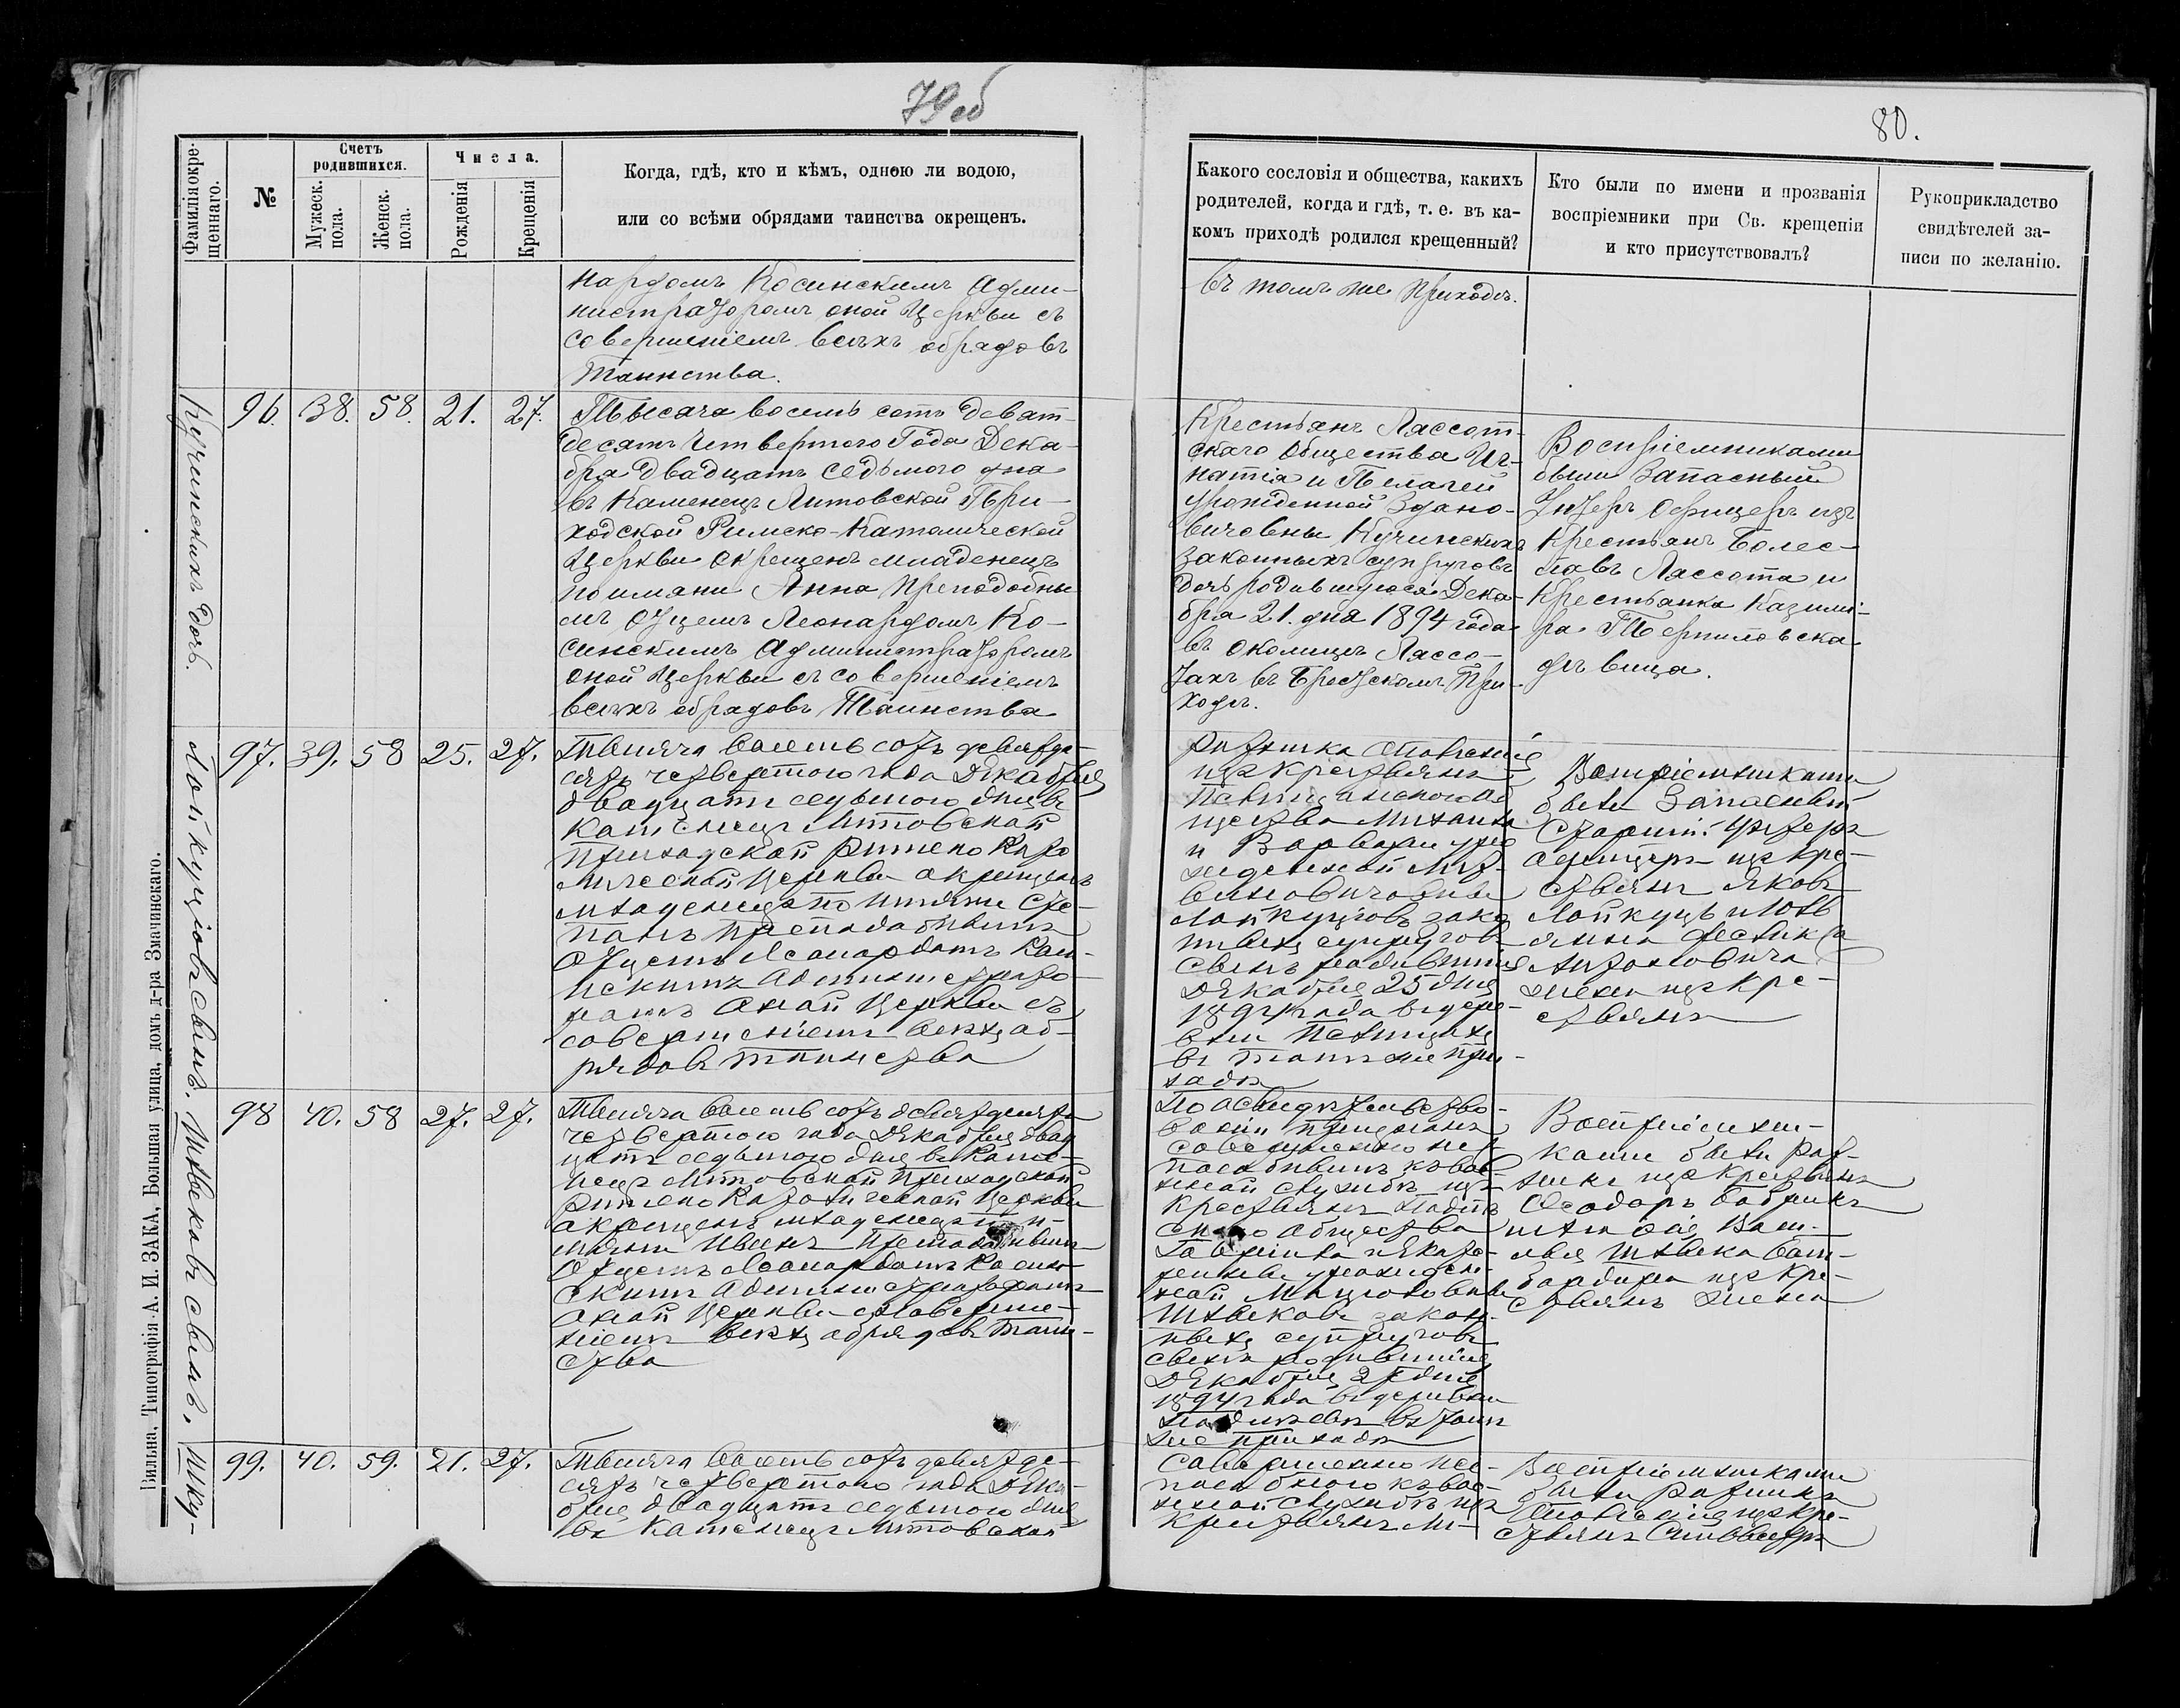 79об
80.
Фамилія окре-
щеннаго.
№
Счетъ
родившихся.
Мужеск.
пола.
Женск.
пола.
Числа.
Рожденія
Крещенія
Когда, гдѣ, кто и кѣмъ, одною ли водою,
или со всѣми обрядами таинства окрещенъ.
Какого сословія и общества, какихъ
родителей, когда и гдѣ, т. е. въ ка-
комъ приходѣ родился крещенный?
Кто были по имени и прозванія
воспріемники при Св. крещеніи
и кто присутствовалъ?
Рукоприкладство
свидѣтелей за-
писи по желанію.
нардомъ Косинскимъ Адми-
нистраторомъ оной Церкви съ
совершеніемъ всѣхъ обрядовъ
Таинства.
въ томъ же Приходѣ.
Кучинскихъ дочь.
96. 38. 58. 21. 27.
Тысяча восемь сотъ девят-
десятъ четвертого Года Дека-
бря двадцать седьмого дня
въ Каменецъ Литовской При-
ходской Римско-Католической
Церкви окрещенъ младенецъ
по имяни Анна Преподобны-
мъ Отцемъ Леонардомъ Ко-
синскимъ Администраторомъ
оной Церкви съ совершеніемъ
всѣхъ обрядовъ Таинства
Крестьянъ Лассот-
скаго Общества Иг-
натія и Пелагеи
урожденной Здано-
вичовны Кучинскихъ
законныхъ супруговъ
дочь родившуюся Дека-
бря 21. дня 1894 года
въ околицѣ Лассо-
тахъ въ Брестскомъ При-
ходѣ.
Воспріемниками
были Запасный
Унтеръ Офицеръ изъ
Крестьянъ Болес-
лавъ Лассота и
Крестьянка Казими-
ра Терпиловска
дѣвица.
Лойкуціовъ сынъ.
97. 39. 58 25. 27.
Тысяча восемь сотъ девятде-
сятъ четвертого года Декабря
двадцать седьмого дня въ
Каменецъ Литовской
Приходской Римско Като
лической Церкви окрещенъ
младенецъ по имяни Сте-
панъ Преподобнымъ
Отцемъ Леонардомъ Кос-
инскимъ Администрато-
ромъ оной Церкви съ
совершеніемъ всѣхъ об-
рядовъ Таинства
Ратника Ополченія
изъ крестьянъ
общества Михаила
и Варвары уро
жденной Лит-
виновичовны
Лойкуцовъ зако
нныхъ супруговъ
сынъ родившійся
Декабря 25 дня
1894 года въ дерe-
вни
въ томъ же При-
ходѣ
Воспріемниками
были Запасный
Старшій Унтеръ
офицеръ изъ кре-
стьянъ Яковъ
Лойкуць и
Антоновича
жена изъ кре-
стьянъ
Швековъ сынъ.
98 40. 58 27. 27.
Тысяча восемь сотъ девятдесятъ
четвертого года Декабря двад
цать седьмого дня въ Каме-
нецъ Литовской Приходской
Римско Католической Церкви
окрещенъ младенецъ по и-
мяни Иванъ Преподобнымъ
Отцемъ Леонардомъ Косин-
скимъ Администраторомъ
оной Церкви съ соверше-
ніемъ всѣхъ обрядовъ Таин-
ства
По освидѣтельство-
ваніи признанъ
совершенно не
пособнымъ к вое
нной службѣ изъ
Крестьянъ
общества
Гавріила и Екате-
рины урожден-
ной
Швековъ закон-
ныхъ супруговъ
сынъ родившійся
Декабря 27 дня
1894 года въ деревни
въ томъ
же приходѣ
Воспріемни-
ками были рат-
никъ изъ крестьянъ
Ѳеодоръ
изъ кре-
стьянъ жена
Шку-
99. 40. 59. 21. 27.
Тысяча восемь сотъ девятде-
сятъ четвертого года Дека-
бря двадцать седьмого дня
въ Каменецъ Литовской
Совершенно нес-
пособного къ вое-
нной службѣ изъ
крестьянъ Ми-
Воспріемниками
были ратникъ
Ополченія изъ кре-
стьянъ Сильвестръ
Вильна, Типографія А. И. ЗАКА, Большая улица, домъ д-ра Змачинскаго.